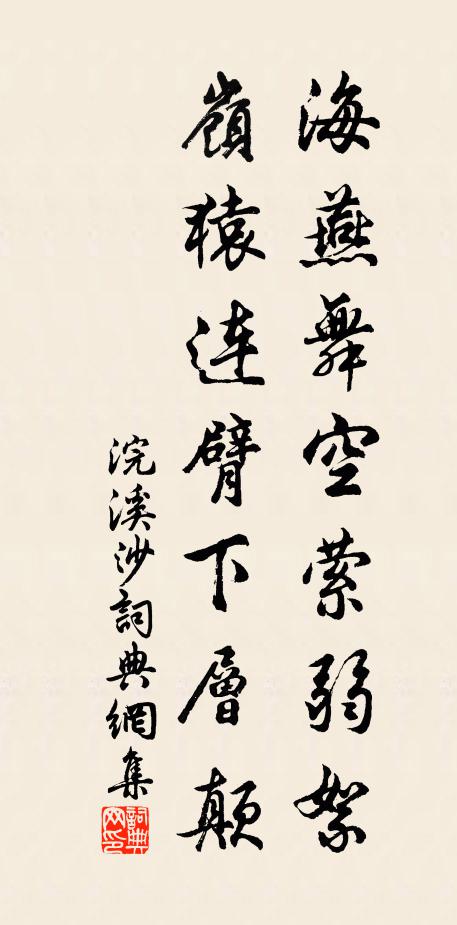 海燕舞空萦弱絮
嶺猿連臂下層巔
浣溪沙詞典網集
詞典
网印